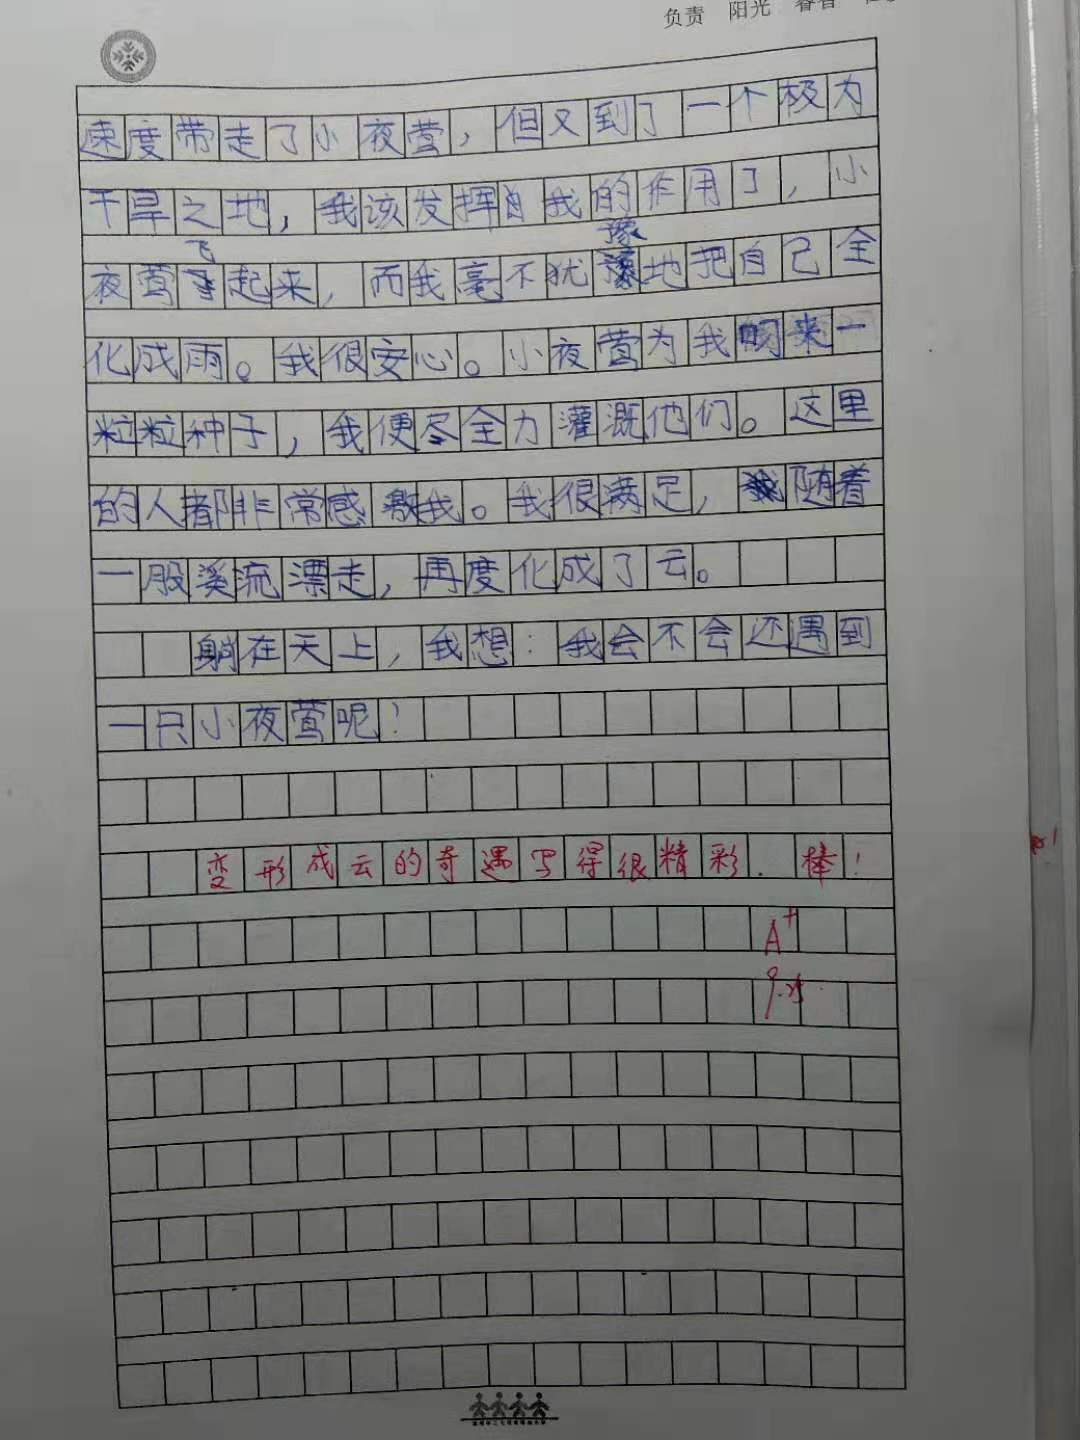 负责 阳光 睿智
速度带走了小夜莺，但又到了一个极为
干旱之地，我该发挥自我的作用了，小
夜莺飞起来，而我毫不犹豫地把自己全
化成雨。我很安心。小夜莺为我叼来一
粒粒种子，我便尽全力灌溉他们。这里
的人都非常感激我。我很满足，随着
一股溪流漂走，再度化成了云。
躺在天上，我想：我会不会还遇到
一只小夜莺呢？
变形成云的奇遇写得很精彩．棒！
A+
9.25